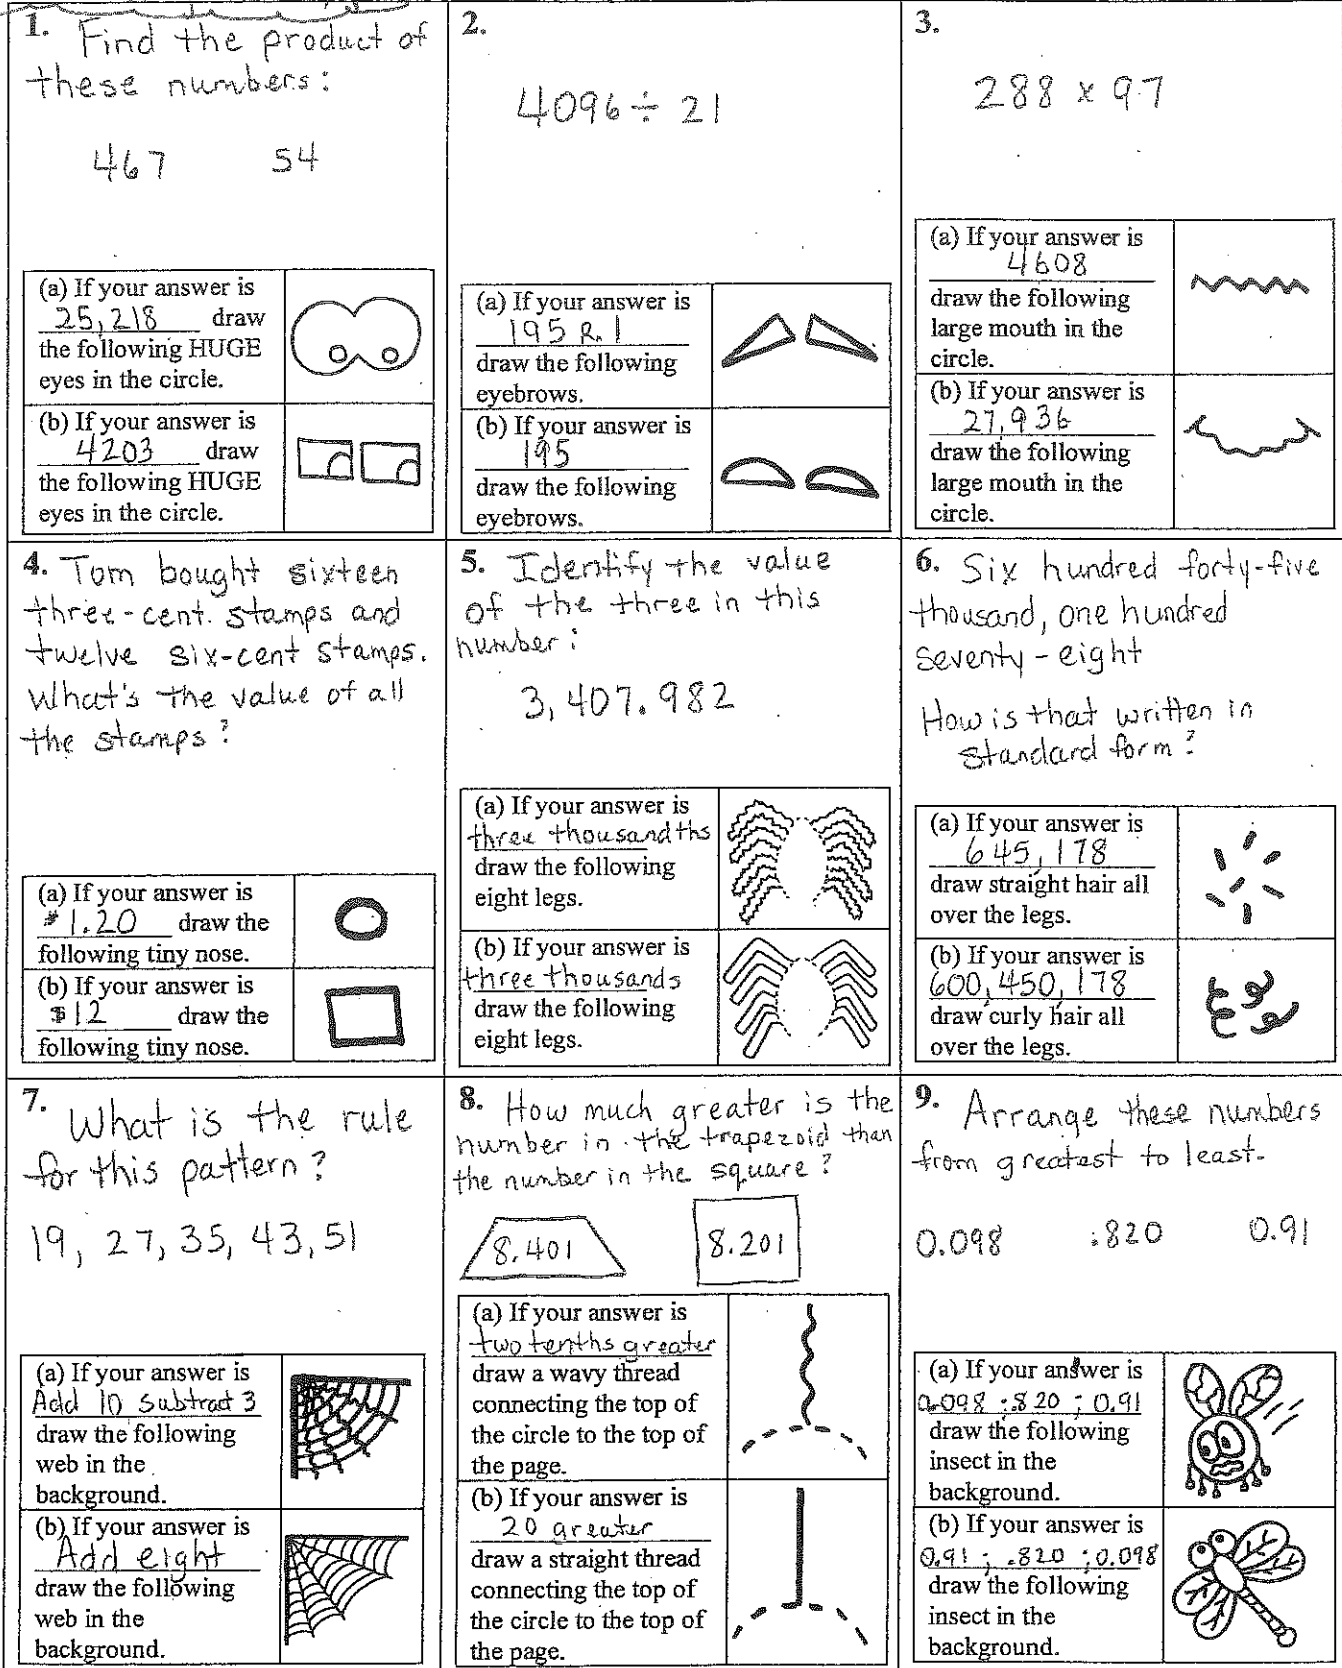 1. Find the product of
these numbers:
467 54
(a) If your answer is
25,218 draw
the following HUGE
eyes in the circle.
(b) If your answer is
4203 draw
the following HUGE
eyes in the circle.
2.
4096 ÷ 21
(a) If your answer is
195 R. 1
draw the following
eyebrows.
(b) If your answer is
195
draw the following
eyebrows.
3.
288 x 97
(a) If your answer is
4608
draw the following
large mouth in the
circle.
(b) If your answer is
27,936
draw the following
large mouth in the
circle.
4. Tom bought sixteen
three-cent stamps and
twelve six-cent stamps.
What's the value of all
the stamps?
(a) If your answer is
$1.20 draw the
following tiny nose.
(b) If your answer is
$12 draw the
following tiny nose.
5. Identify the value
of the three in this
number:
3,407.982
(a) If your answer is
three thousandths
draw the following
eight legs.
(b) If your answer is
three thousands
draw the following
eight legs.
6. Six hundred forty-five
thousand, one hundred
seventy-eight
How is that written in
standard form?
(a) If your answer is
645,178
draw straight hair all
over the legs.
(b) If your answer is
600,450,178
draw curly hair all
over the legs.
7. What is the rule
for this pattern?
19, 27, 35, 43, 51
(a) If your answer is
Add 10 subtract 3
draw the following
web in the
background.
(b) If your answer is
Add eight
draw the following
web in the
background.
8. How much greater is the
number in the trapezoid than
the number in the square?
8.401 8.201
(a) If your answer is
two tenths greater
draw a wavy thread
connecting the top of
the circle to the top of
the page.
(b) If your answer is
20 greater
draw a straight thread
connecting the top of
the circle to the top of
the page.
9. Arrange these numbers
from greatest to least.
0.098 .820 0.91
(a) If your answer is
0.098 ; .820 ; 0.91
draw the following
insect in the
background.
(b) If your answer is
0.91 ; .820 ; 0.098
draw the following
insect in the
background.